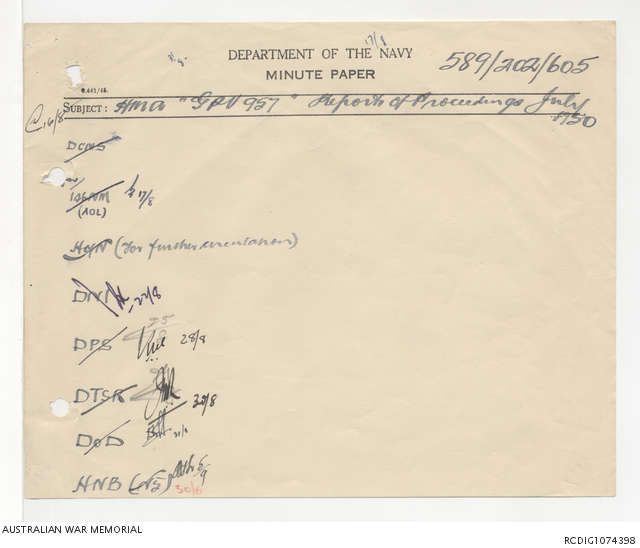 17/8
DEPARTMENT OF THE NAVY
MINUTE PAPER
589/202/605
SUBJECT: HMA "GPV 957" Reports of Proceedings July 1950
16/8
DCNS
(AOL) 17/8
HofN (for further circulation)
DNI 22/8
25/8
DPS 28/8
DTSR 30/8
DoD 31/8
HNB (NS) 5/9
30/8
AUSTRALIAN WAR MEMORIAL
RCDIG1074398